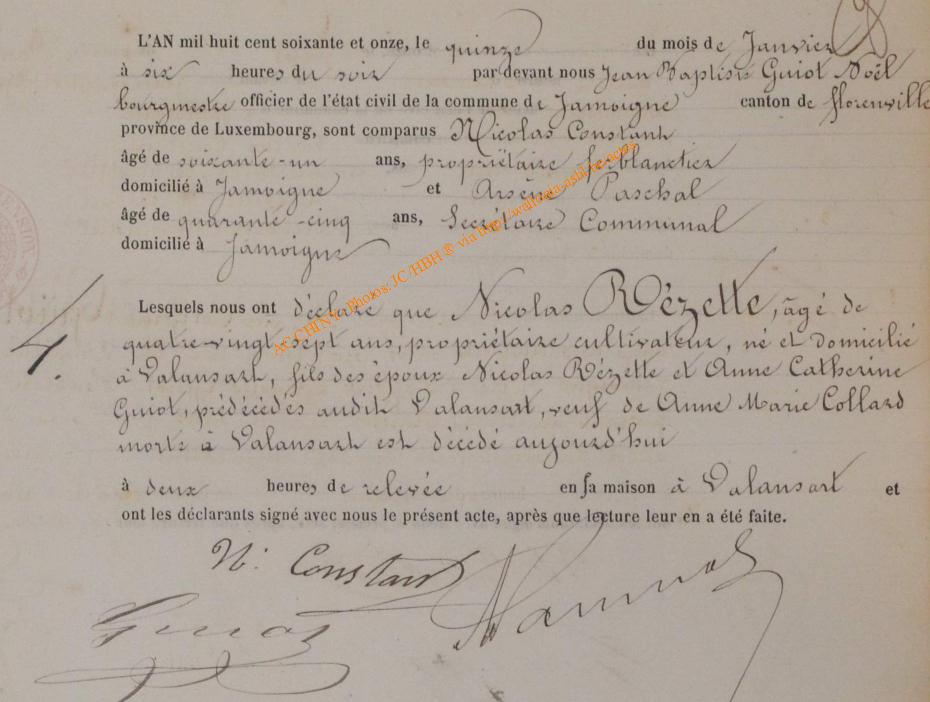 L'AN mil huit cent soixante et onze, le quinze du mois de Janvier
à six heures du soir par devant nous Jean Baptiste Guiot Noël
bourgmestre officier de l'état civil de la commune de Jamoigne canton de florenville
province de Luxembourg, sont comparus Nicolas Constant
âgé de soixante-un ans, propriétaire ferblantier
domicilié à Jamoigne et Arsène Paschal
âgé de quarante-cinq ans, Secrétaire Communal
domicilié à Jamoigne
Lesquels nous ont déclaré que Nicolas Rézette, âgé de
4.
quatre-vingt sept ans, propriétaire cultivateur, né et domicilié
à Valansart, fils des époux Nicolas Rézette et Anne Catherine
Guiot, prédécédés audit Valansart, veuf de Anne Marie Collard
morte à Valansart est décédé aujourd'hui
à deux heures de relevée en sa maison à Valansart et
ont les déclarants signé avec nous le présent acte, après que lecture leur en a été faite.
N. Constant